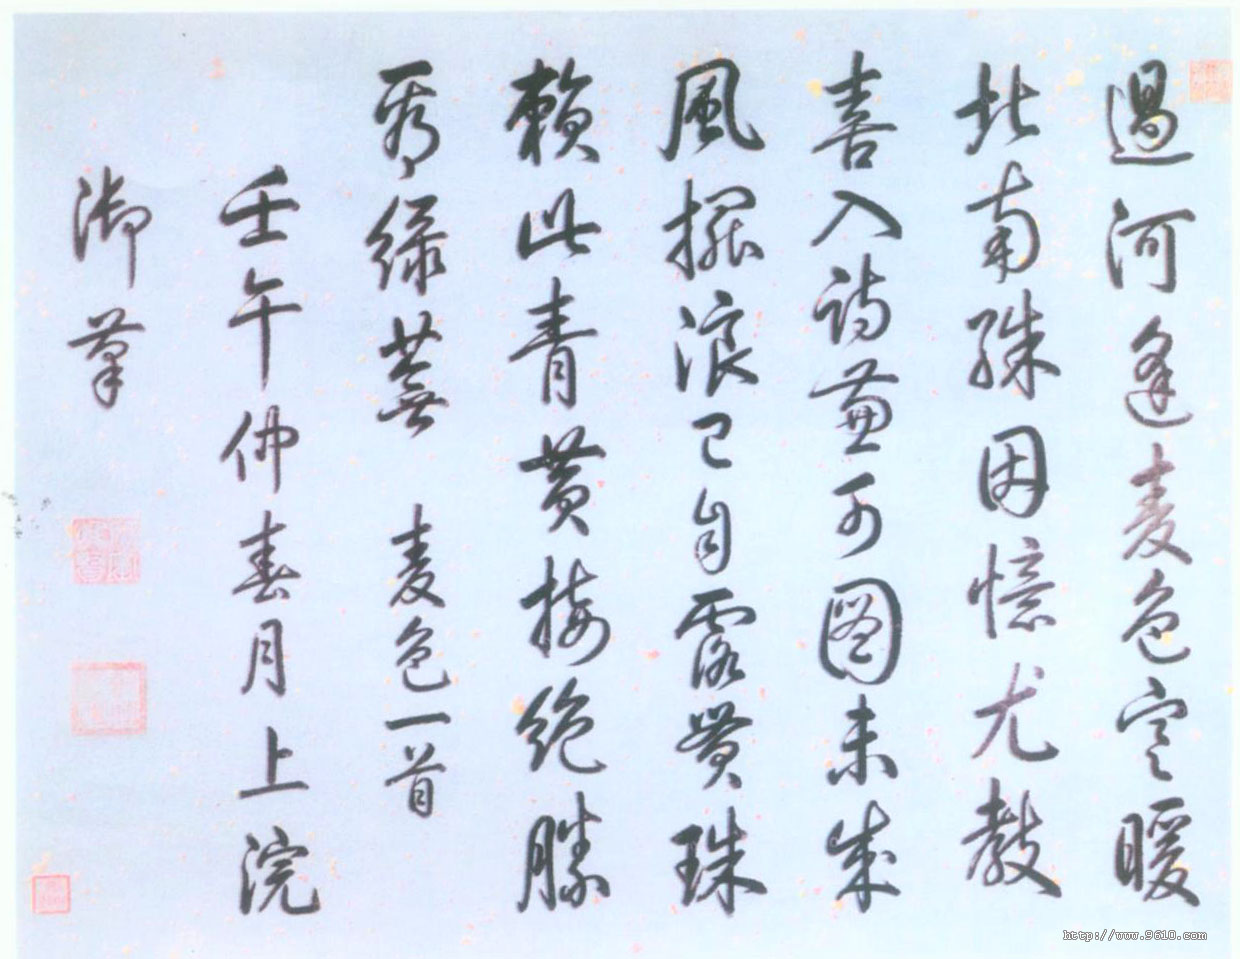 過河逢麦色寒暖
北南殊因憶尤教
喜入詩兼可圖未成
風擺浪已自露貫珠
賴此青黄接絶勝
秀緑蕪 麦色一首
壬午仲春月上浣
御筆
http://www.9610.com